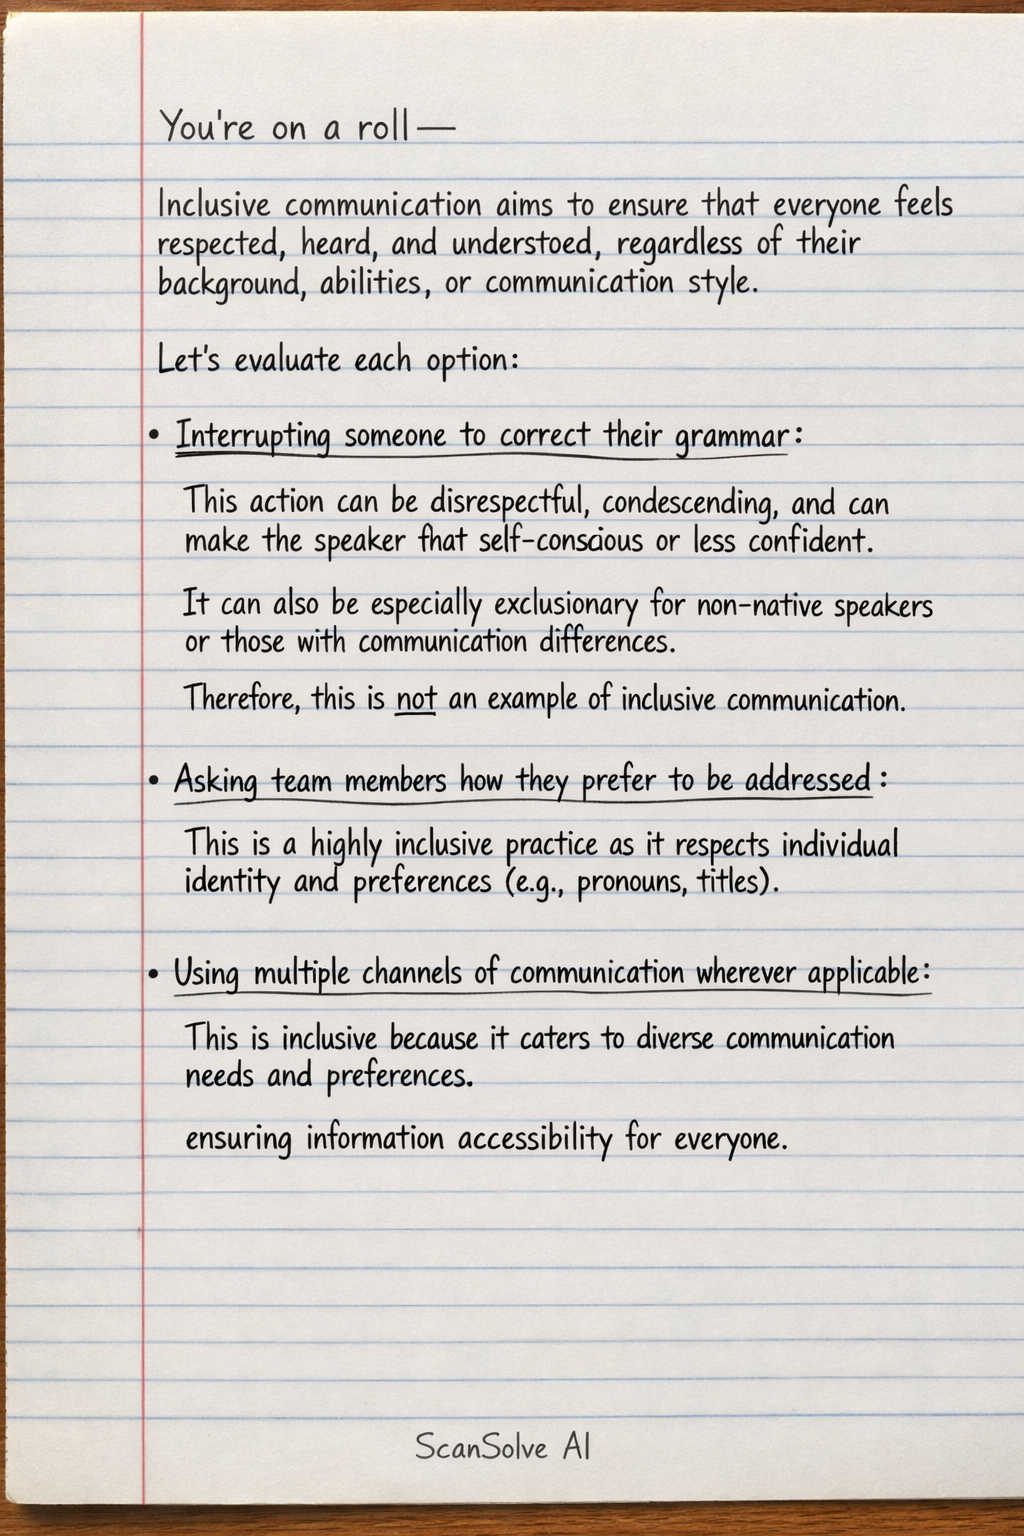 You're on a roll—
Inclusive communication aims to ensure that everyone feels
respected, heard, and understoed, regardless of their
background, abilities, or communication style.
Let's evaluate each option:
• Interrupting someone to correct their grammar:
This action can be disrespectful, condescending, and can
make the speaker fhat self-conscious or less confident.
It can also be especially exclusionary for non-native speakers
or those with communication differences.
Therefore, this is not an example of inclusive communication.
• Asking team members how they prefer to be addressed:
This is a highly inclusive practice as it respects individual
identity and preferences (e.g., pronouns, titles).
• Using multiple channels of communication wherever applicable:
This is inclusive because it caters to diverse communication
needs and preferences.
ensuring information accessibility for everyone.
ScanSolve AI